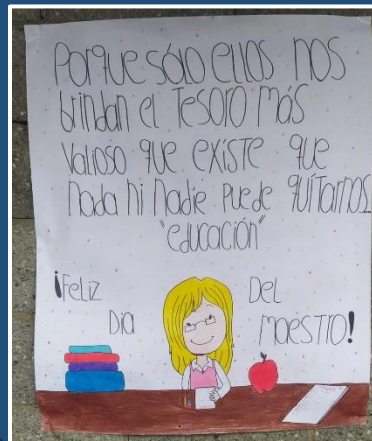 Porque sólo ellos nos
brindan el Tesoro más
Valioso que existe que
Nada ni Nadie puede quitarnos
"educación"
¡Feliz Del
Dia maestro!